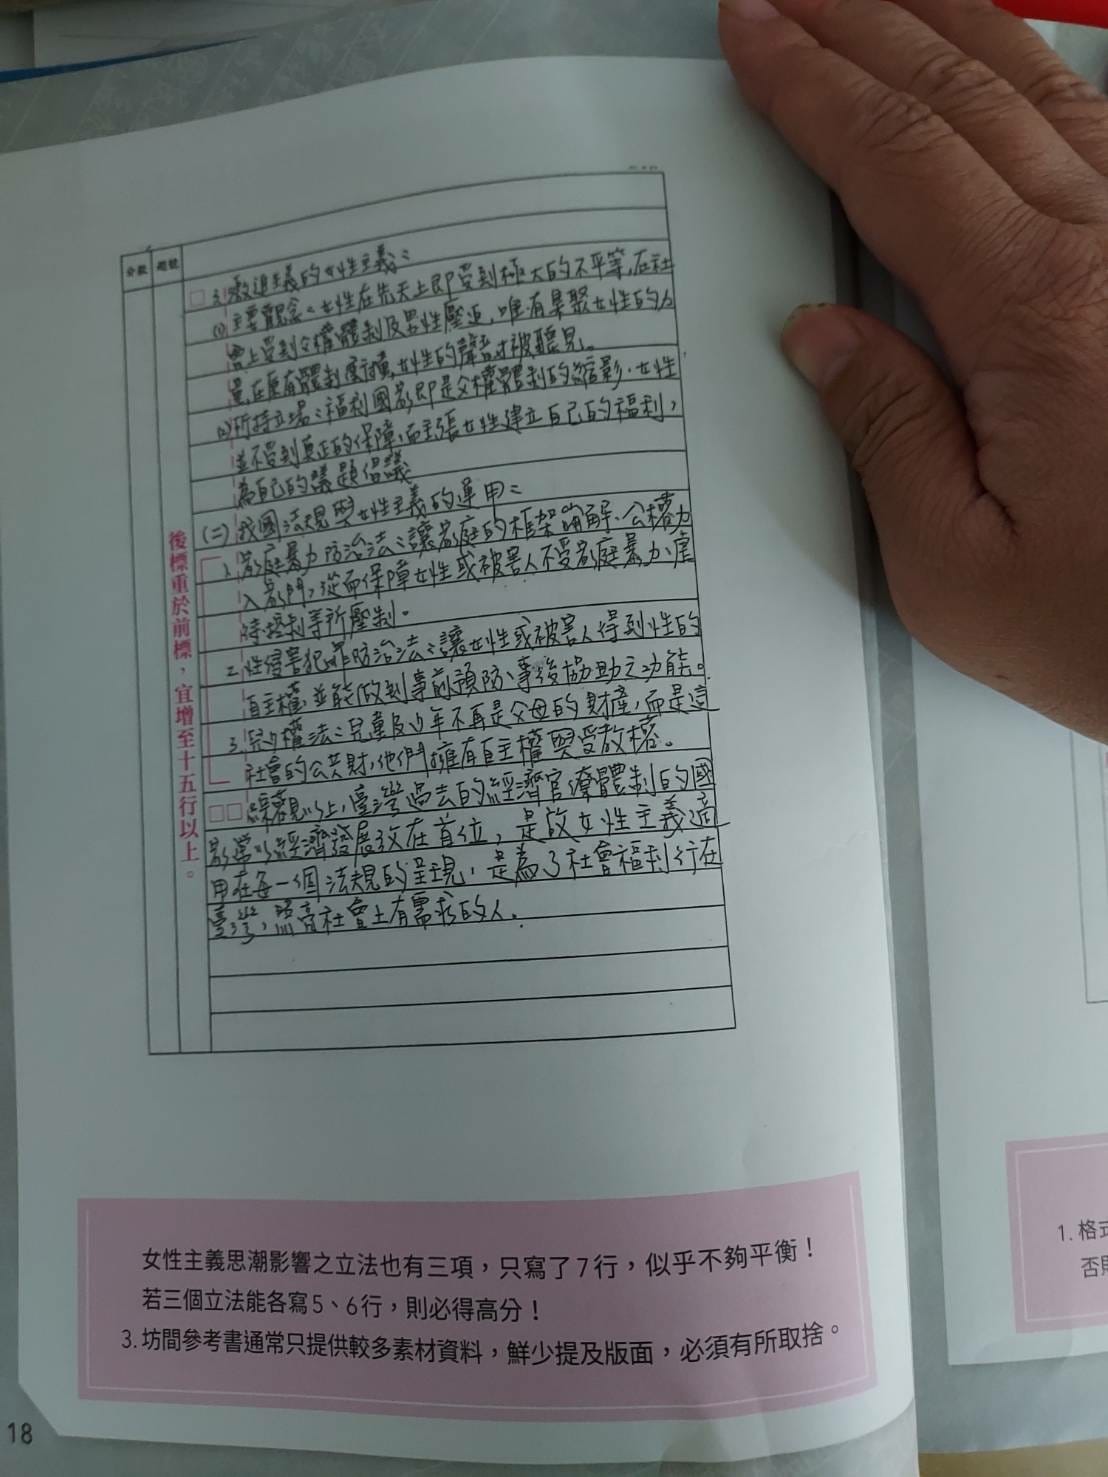 分數 題號
3.激進主義的女性主義：
(1)主要觀念：女性在先天上即受到極大的不平等,在社
會上受到父權體制及男性壓迫,唯有集聚女性的力
量,在原有體制衝撞,女性的聲音才被聽見。
(2)所持立場：福利國家即是父權體制的縮影,女性
並不得到真正的保障,而主張女性建立自己的福利,
為自己的議題倡議
(二)我國法規與女性主義的運用：
1.家庭暴力防治法：讓家庭的框架崩解、公權力
入家門,從而保障女性或被害人不受家庭暴力、虐
待控制等所壓制。
2.性侵害犯罪防治法：讓女性或被害人得到性的
自主權,並能做到事前預防、事後協助之功能。
3.兒少權法：兒童及少年不再是父母的財產,而是這
社會的公共財,他們擁有自主權與受教權。
□□綜觀以上,臺灣過去的經濟官僚體制的國
家常以經濟發展放在首位,是故女性主義適
用在每一個法規的呈現,是為了社會福利行在
臺灣,照亮社會上有需求的人.
後標重於前標，宜增至十五行以上。
女性主義思潮影響之立法也有三項，只寫了7行，似乎不夠平衡！
若三個立法能各寫5、6行，則必得高分！
3.坊間參考書通常只提供較多素材資料，鮮少提及版面，必須有所取捨。
18
1.格式